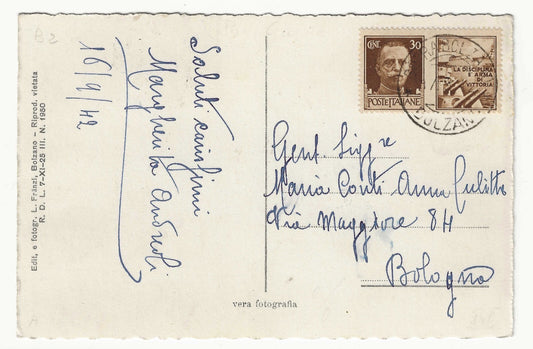 B2
16/9/42
Saluti carissimi
Margherita Andreoli
Edit. e fotogr. L. Fränzl, Bolzano — Riprod. vietata
R. D. L. 7-XI-25 III. N. 1950
vera fotografia
CENT. 30
POSTE ITALIANE
LA DISCIPLINA
È ARMA DI
VITTORIA
BOLZANO
Gent. Sigg.re
Maria Conti Anna
Via Maggiore 84
Bologna